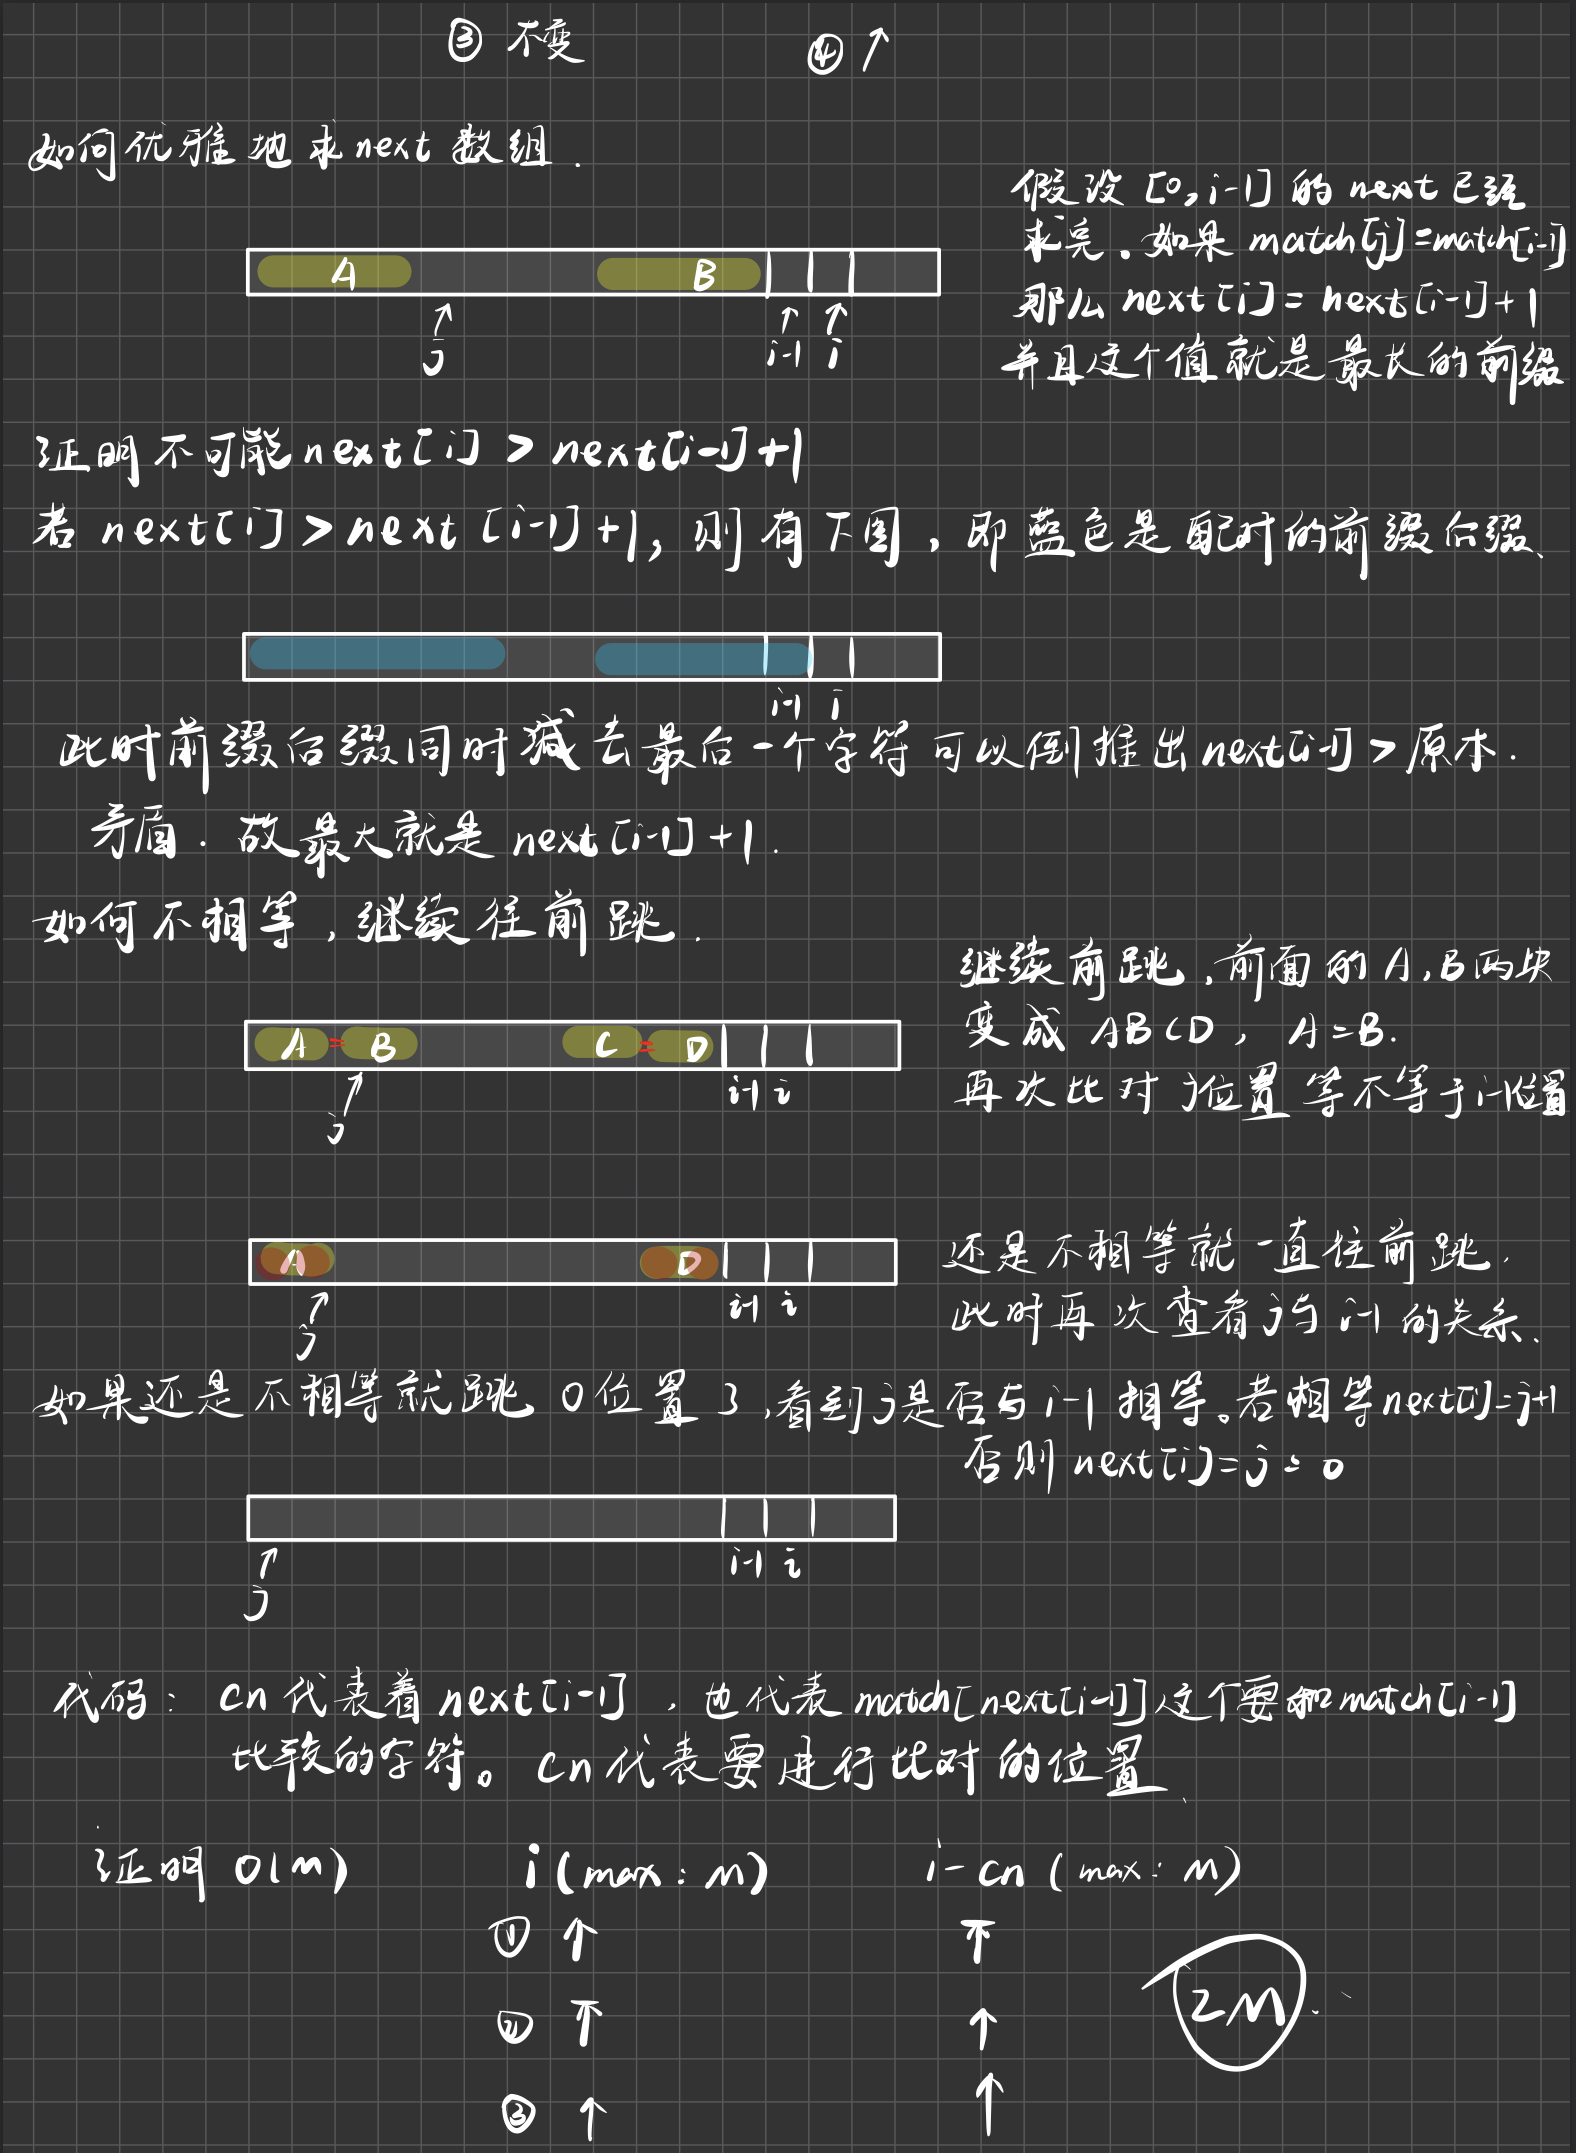 ③ 不变 ④ ↑
如何优雅地求next数组.
假设[0,i-1]的next已经
求完.如果match[j]=match[i-1]
那么next[i]=next[i-1]+1
并且这个值就是最长的前缀
A B
j i-1 i
证明不可能next[i]>next[i-1]+1
若next[i]>next[i-1]+1,则有下图,即蓝色是配对的前缀后缀、
i-1 i
此时前缀后缀同时减去最后一个字符可以倒推出next[i-1]>原本.
矛盾.故最大就是next[i-1]+1.
如何不相等,继续往前跳.
继续前跳,前面的A,B两块
变成ABCD,A=B.
再次比对j位置等不等于i-1位置
A = B C = D
j i-1 i
还是不相等就一直往前跳.
此时再次查看j与i-1的关系.
A D
j i-1 i
如果还是不相等就跳0位置了,看到j是否与i-1相等。若相等next[i]=j+1
否则next[i]=j=0
j i-1 i
代码: cn代表着next[i-1],也代表match[next[i-1]]这个要和match[i-1]
比较的字符。cn代表要进行比对的位置
证明O(M) i(max:M) i-cn(max:M)
① ↑ ↑
② ↑ ↑
2M
③ ↑ ↑